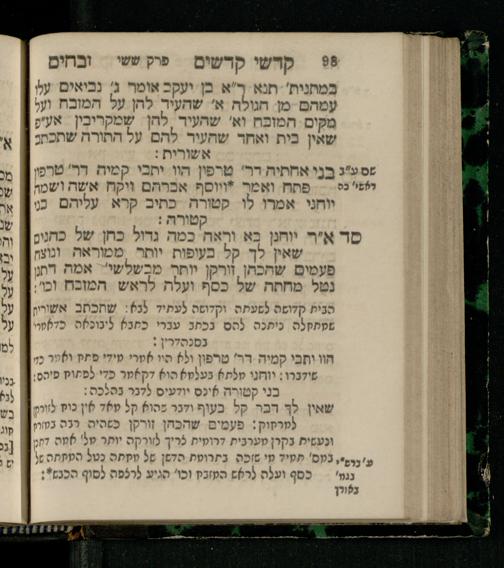 98 קדשי קדשים פרק ששי זבחים
במתנית׳ תנא ר״א בן יעקב אומר ג׳ נביאים עלו
עמהם מן הגולה א׳ שהעיד להן על המזבח ועל
מקום המזבח וא׳ שהעיד להן שמקריבין אע״פ
שאין בית ואחד שהעיד להם על התורה שתכתב
אשורית :
בני אחתיה דר׳ טרפון הוו יתבי קמיה דר׳ טרפון
פתח ואמר *ויוסף אברהם ויקח אשה ושמה
יוחני אמרו לו קטורה כתיב קרא עליהם בני
קטורה :
שם ע״ב
ראשי׳ כה
סד א״ר יוחנן בא וראה כמה גדול כחן של כהנים
שאין לך קל בעופות יותר ממוראה ונוצה
פעמים שהכהן זורקן יותר מבשלשי׳ אמה דתנן
נטל מחתה של כסף ועלה לראש המזבח וכו׳ :
הבית קדושה לשעתה וקדושה לעתיד לבא: שתכתב אשורית
שמתחלה ניתנה להם בכתב עברי כתבא ליבונאה כדאמרי׳
בסנהדרין :
הוו יתבי קמיה דר׳ טרפון ולא הוו אמרי מידי פתח ואמר כדי
שידברו: יוחני מלתא בעלמא הוא דקאמר כדי לפתוח פיהם:
בני קטורה אינם יודעים לדבר בהלכה :
שאין לך דבר קל בעוף ודבר שהוא קל מאד אין נוח לזורקן
למרחוק: פעמים שהכהן זורקן כשהיה רבה במזרח
ונעשית בקרן מערבית דרומית לריך לזורקה יותר מל׳ אמה דתנן
במס׳ תמיד מי שזכה בתרומת הדשן של מחתה נטל המחתה של
כסף ועלה לראש המזבח וכו׳ הגיע לרלפה לסוף הכבש*:
ע׳ ברש״י
בגמ׳
באורך